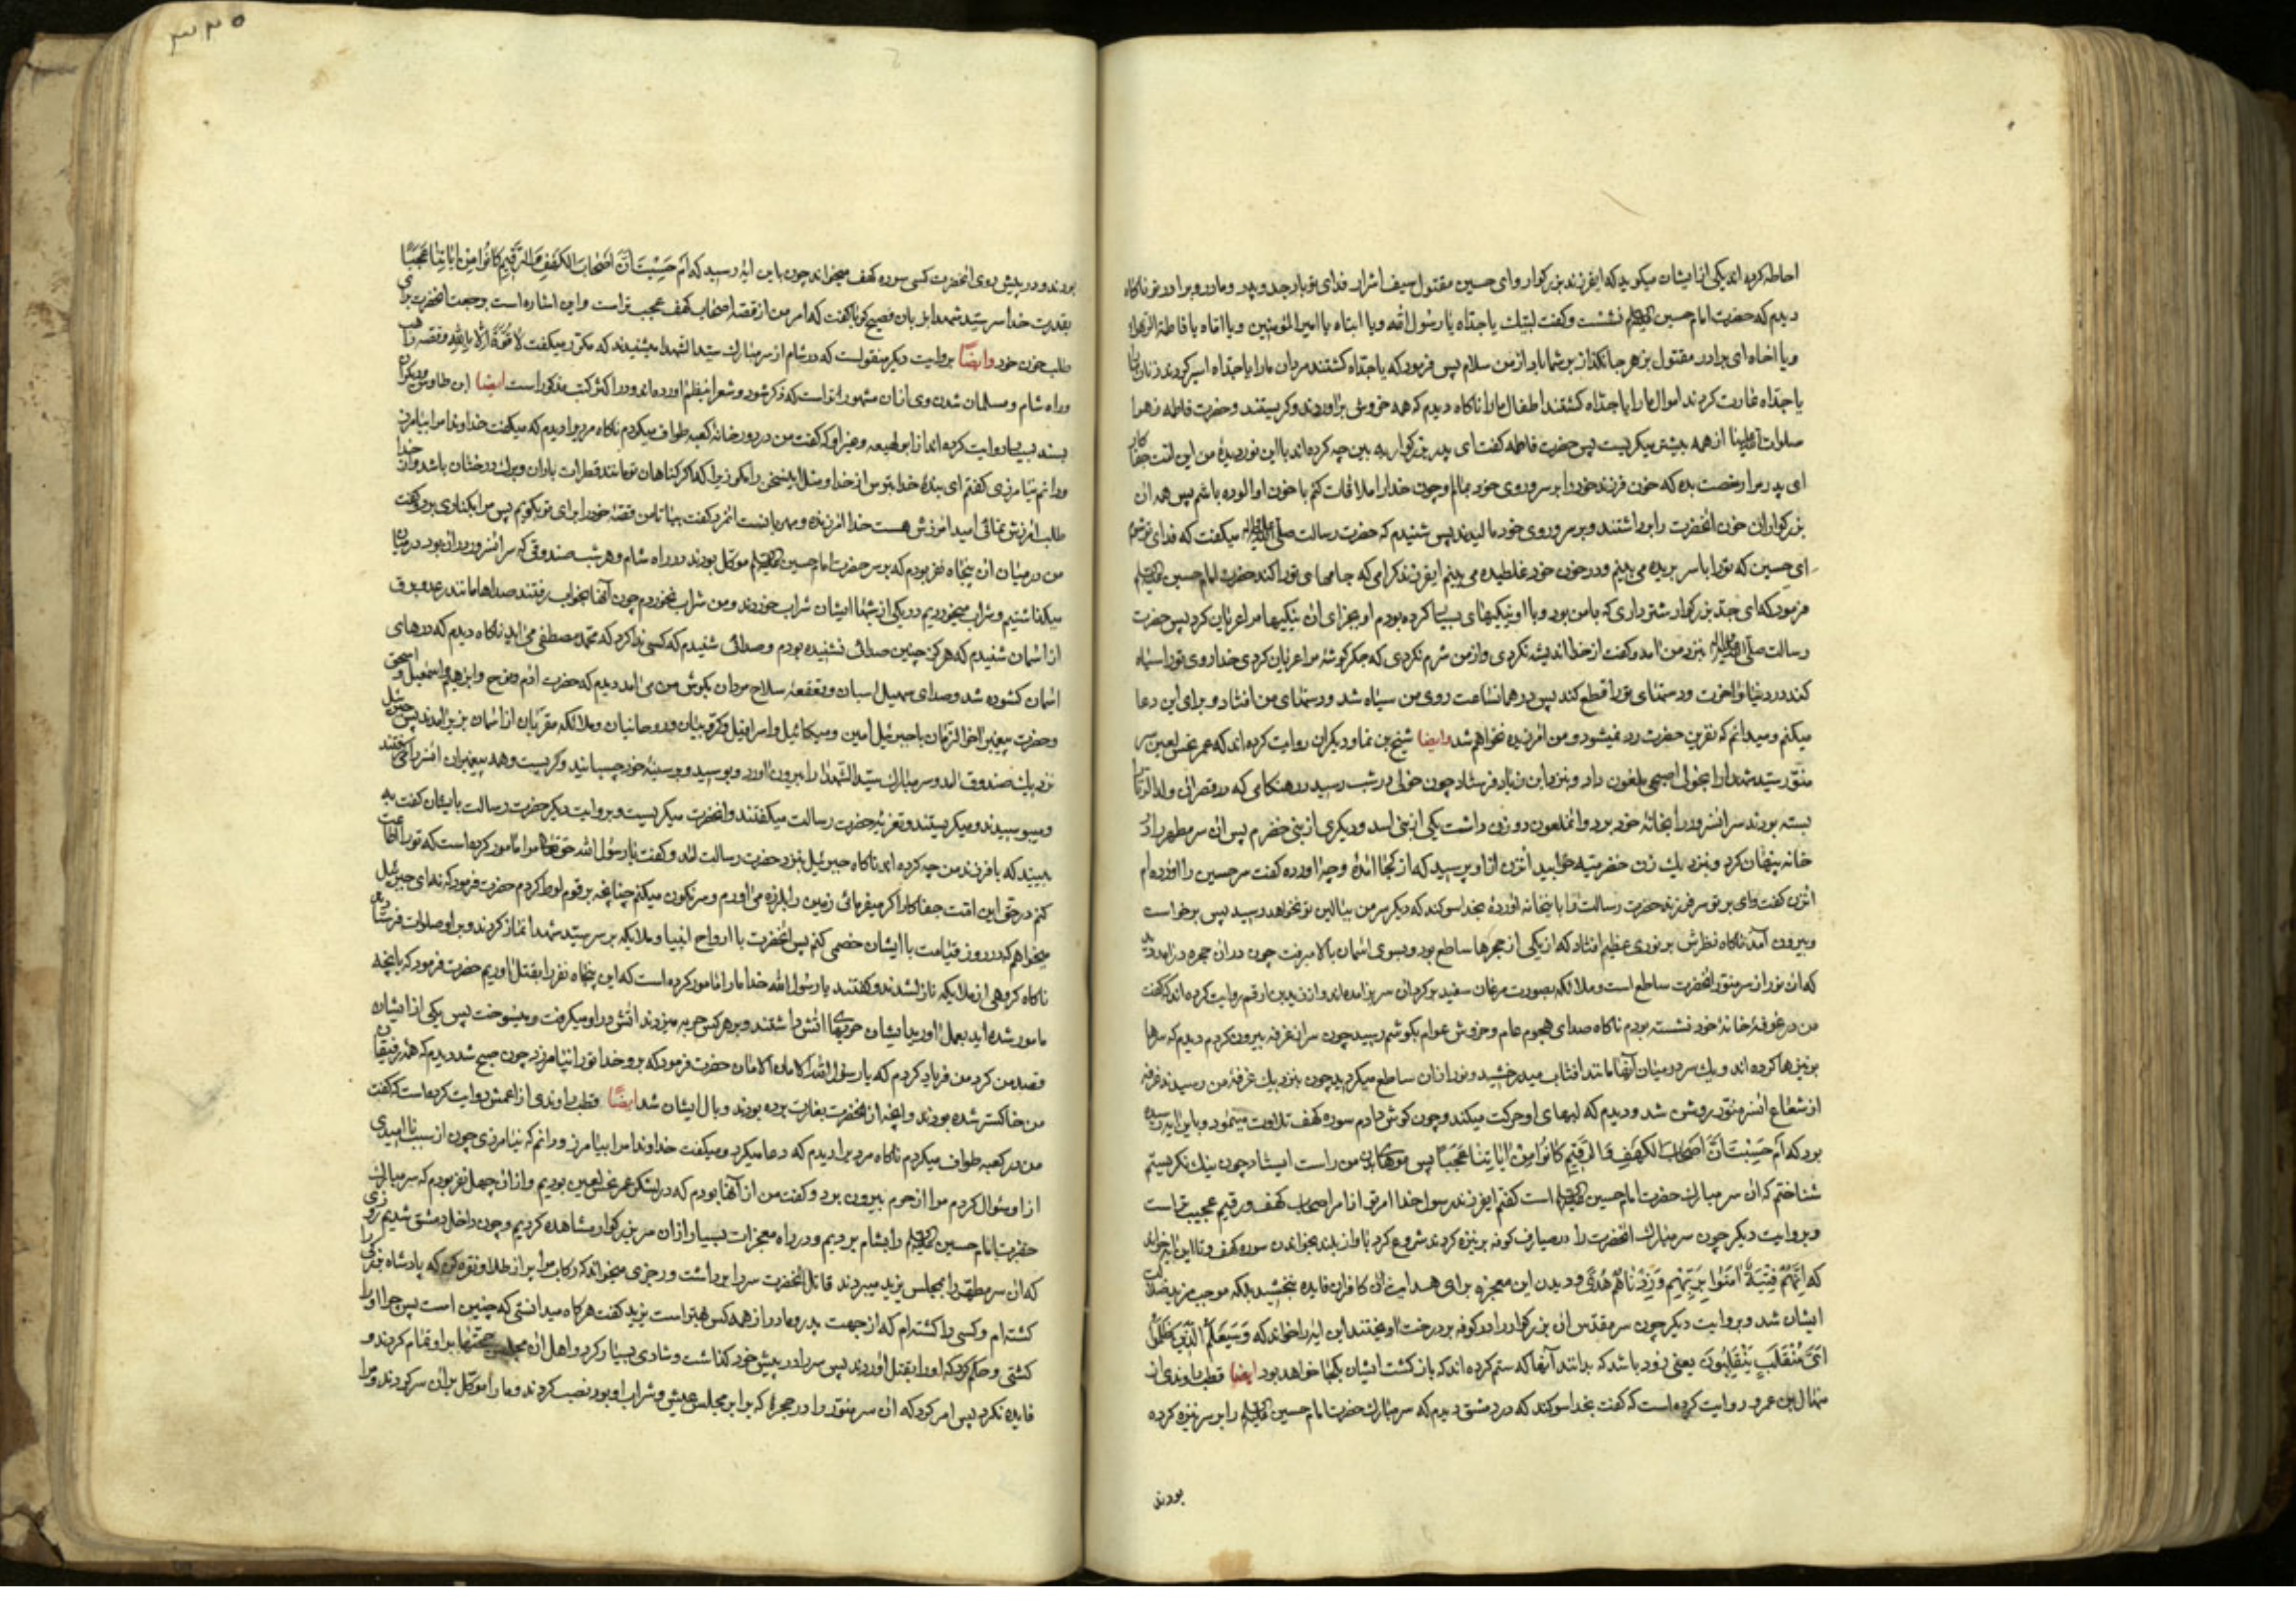 احاطه کرده اند یکی از ایشان میگوید که ایفرزند بزرکوار وای حسین مقتول سیف اشرار فدای تو باد جد و پدر و مادر و برادر تو ناکاه
دیدم که حضرت امام حسین نشست و کفت لبیک یا جداه یا رسول الله و یا ابتاه یا امیر المؤمنین و یا اماه یا فاطمة الزهرا
و یا اخاه ای برادر مقتول بزهر جانکداز بر شما باد از من سلام پس فرمود که یا جداه کشتند مردان ما را یا جداه اسیر کردند زنان ما را
یا جداه غارت کردند اموال ما را یا جداه کشتند اطفال ما را ناکاه دیدم که همه خروش براوردند و کریستند و حضرت فاطمه زهرا
صلوات از همه بیشتر میکریست پس حضرت فاطمه کفت ای پدر بزرکوار ببین چه کرده اند با این نور دیدهٔ من این امت جفا کار
ای پدر مرا رخصت بده که خون فرزند خود را بر سر و روی خود بمالم و چون خدا را ملاقات کنم با خون او الوده باشم پس همه ان
بزرکواران خون انحضرت را برداشتند و بر سر و روی خود مالیدند پس شنیدم که حضرت رسالت صلی الله میکفت که فدای تو شوم
ای حسین که تو را با سر بریده می بینم و در خون خود غلطیده می بینم ایفرزند کرامی که جامهای تو را کند حضرت امام حسین
فرمود که ای جد بزرکوار شترداری که با من بود و با او نیکیهای بسیار کرده بودم او بجزای ان نیکیها مرا عریان کرد پس حضرت
رسالت صلی الله بنزد من امد و کفت از خدا اندیشه نکردی و از من شرم نکردی که جکر کوشهٔ مرا عریان کردی خدا روی تو را سیاه
کند در دنیا و اخرت و دستهای تو را قطع کند پس در همانساعت روی من سیاه شد و دستهای من افتاد و برای این دعا
میکنم و میدانم که نفرین حضرت رد نمیشود و من امرزیده نخواهم شد وایضا شیخ بن نما و دیکران روایت کرده اند که عمر نحس لعین سر
منور سید شهدا را بخولی اصبحی ملعون داد و بنزد ابن زیاد فرستاد چون خولی در شب رسید در هنکامی که در قصر ان ولد الزنا را
بسته بودند سر انسرور را بخانهٔ خود برد و انملعون دو زن داشت یکی از بنی اسد و دیکری از بنی خضرم پس ان سر مطهر را در
خانه پنهان کرد و بنزدیک زن خضرمیه خوابید انزن از او پرسید که از کجا امدهٔ و چه اورده کفت سر حسین را اورده ام
انزن کفت وای بر تو سر فرزند حضرت رسالت را باینخانه اوردهٔ بخدا سوکند که دیکر سر من ببالین تو نخواهد رسید پس برخواست
و بیرون آمد ناکاه نظرش بر نوری عظیم افتاد که از یکی از حجرها ساطع بود و بسوی اسمان بالا میرفت چون در ان حجره درامد دید
که ان نور از سر منور انحضرت ساطع است و ملائکه بصورت مرغان سفید بر کرد ان سر برامده اند و از زید بن ارقم روایت کرده اند که کفت
من در غرفهٔ خانهٔ خود نشسته بودم ناکاه صدای هجوم عام و خروش عوام بکوشم رسید چون سر از غرفه بیرون کردم دیدم که سرها
بر نیزها کرده اند و یک سر در میان آنها مانند افتاب میدرخشید و نور از ان ساطع میکردید چون بنزدیک غرفهٔ من رسیدند غرفه
از شعاع انسر منور روشن شد و دیدم که لبهای او حرکت میکند و چون کوش دادم سوره کهف تلاوت مینمود و باین ایه رسیده
بود که اَم حَسِبْتَ اَنَّ اَصحابَ الکَهفِ وَ الرَّقیمِ کانُوا مِنْ آیاتِنا عَجَبًا پس موهای بدن من راست ایستاد چون نیک نکریستم
شناختم که ان سر مبارک حضرت امام حسین است کفتم ایفرزند رسول خدا امر تو از امر اصحاب کهف و رقیم عجیب تر است
و بروایت دیکر چون سر مبارک انحضرت را در صیارف کوفه بر نیزه کردند شروع کرد باواز بلند بخواندن سوره کهف و تا این ایه خواند
که اِنَّهُمْ فِتْیَةٌ امَنُوا بِرَبِّهِمْ وَ زِدْناهُمْ هُدًی و دیدن این معجزه برای هدایت ان کافران فایده نبخشید بلکه موجب مزید ضلالت
ایشان شد و بروایت دیکر چون سر مقدس ان بزرکوار را در کوفه بر درخت اویختند این ایه را خواند که وَ سَیَعلَمُ الَّذینَ ظَلَمُوا
اَیَّ مُنْقَلَبٍ یَنْقَلِبُونَ یعنی زود باشد که بدانند آنها که ستم کرده اند که بازکشت ایشان بکجا خواهد بود ایضا قطب راوندی از
منهال بن عمرو روایت کرده است که کفت بخدا سوکند که در دمشق دیدم که سر مبارک حضرت امام حسین را بر سر نیزه کرده
بودند
۳۳۵
بودند و در پیش روی انحضرت کسی سوره کهف میخواند چون باین ایه رسید که اَم حَسِبْتَ اَنَّ اَصْحابَ الکَهْفِ وَ الرَّقیمِ کانُوا مِنْ ایاتِنا عَجَبًا
بقدرت خدا سر سید شهدا بزبان فصیح کویا کفت که امر من از قصهٔ اصحاب کهف عجیب تر است و این اشاره است برجعت انحضرت برای
طلب خون خود وایضًا بروایت دیکر منقولست که در شام از سر مبارک سید الشهدا میشنیدند که مکرر میکفت لا قُوَّةَ اِلّا بِاللهِ و قصه راهب
و راه شام و مسلمان شدن وی از ان مشهورتر است که ذکر شود و شعرا بنظم اورده اند و در اکثر کتب مذکور است ایضا ابن طاوس و دیکران
بسند بسیار روایت کرده اند از ابو لهیعه و غیر او که کفت من در دور خانهٔ کعبه طواف میکردم ناکاه مردیرا دیدم که میکفت خداوندا مرا بیامرز
و دانم نیامرزی کفتم ای بندهٔ خدا بترس از خدا و مثل این سخن را مکو زیرا که اکر کناهان تو مانند قطرات باران و برک درختان باشد و از خدا
طلب امرزش نمائی امید امرزش هست خدا امرزنده و مهربانست انمرد کفت بیا تا من قصهٔ خود را برای تو بکویم پس مرا بکناری برد و کفت
من در میان ان پنجاه نفر بودم که بر سر حضرت امام حسین موکل بودند در راه شام و هر شب صندوقی که سر انسرور در ان بود در میان
میکذاشتیم و شراب میخوردیم در یکی از شبها ایشان شراب خوردند و من شراب نخوردم چون آنها بخواب رفتند صداها مانند رعد و برق
از اسمان شنیدم که هرکز چنین صدائی نشنیده بودم و صدائی شنیدم که کسی ندا کرد که محمد مصطفی می اید ناکاه دیدم که درهای
اسمان کشوده شد و صدای صهیل اسبان و قعقعه سلاح مردان بکوش من می امد دیدم که حضرت ادم و نوح و ابراهیم و اسمعیل و اسحق
و حضرت پیغمبر اخر الزمان با جبرئیل امین و میکائیل و اسرافیل و کروبیان و روحانیان و ملائکه مقربان از اسمان بزیر امدند پس جبرئیل
نزدیک صندوق امد و سر مبارک سید الشهدا را بیرون اورد و بوسید و بر سینهٔ خود چسبانید و کریست و همه پیغمبران انسر را میکرفتند
و میبوسیدند و میکریستند و تعزیهٔ حضرت رسالت میکفتند و انحضرت میکریست و بروایت دیکر حضرت رسالت بایشان کفت
ببینید که با فرزند من چه کرده اند ناکاه جبرئیل بنزد حضرت رسالت امد و کفت یا رسول الله حق مرا مامور کرده است که تو را اطاعت
کنم در حق این امت جفا کار اکر میفرمائی زمین را بلرزه می اورم و سرنکون میکنم چنانچه بر قوم لوط کردم حضرت فرمود که نه ای جبرئیل
میخواهم که در روز قیامت با ایشان خصمی کنم پس انحضرت با ارواح انبیا و ملائکه بر سر سید شهدا نماز کردند و بر او صلوات فرستادند
ناکاه کروهی از ملائکه نازل شدند و کفتند یا رسول الله خدا ما را مامور کرده است که این پنجاه نفر را بقتل اوریم حضرت فرمود که بانچه
مامور شده اید بعمل اورید ایشان حربهای اتش داشتند و بر هر کس حربه میزدند اتش در او میکرفت و میسوخت پس یکی از ایشان
قصد من کرد من فریاد کردم که یا رسول الله الامان الامان حضرت فرمود که برو خدا تو را نیامرزد چون صبح شد دیدم که همهٔ رفیقان
من خاکستر شده بودند و انچه از انحضرت بغارت برده بودند وبال ایشان شد ایضًا قطب راوندی از اعمش روایت کرده است که کفت
من در کعبه طواف میکردم ناکاه مردیرا دیدم که دعا میکرد و میکفت خداوندا مرا بیامرز و دانم که نیامرزی چون از سبب نا امیدی
از او سؤال کردم مرا از حرم بیرون برد و کفت من از آنها بودم که در لشکر عمر نحس لعین بودیم و از ان چهل نفر بودم که سر مبارک
حضرت امام حسین را بشام بردیم و در راه معجزات بسیار از ان سر بزرکوار مشاهده کردیم و چون داخل دمشق شدیم روزی
که ان سر مطهر را بمجلس یزید میبردند قاتل انحضرت سر را برداشت و رجزی میخواند که رکاب مرا پر از طلا و نقره کن که پادشاه بزرکی را
کشته ام و کسی را کشته ام که از جهت پدر و مادر از همه کس بهتر است یزید کفت هرکاه میدانستی که چنین است پس چرا او را
کشتی و حکم کرد که او را بقتل اوردند پس سر را در پیش خود کذاشت و شادی بسیار کرد و اهل ان مجلس حجتها بر او تمام کردند و
فایده نکرد پس امر کرد که ان سر منور را در حجرهٔ که برابر مجلس عیش و شراب او بود نصب کردند و ما را موکل بران سر کردند و مرا